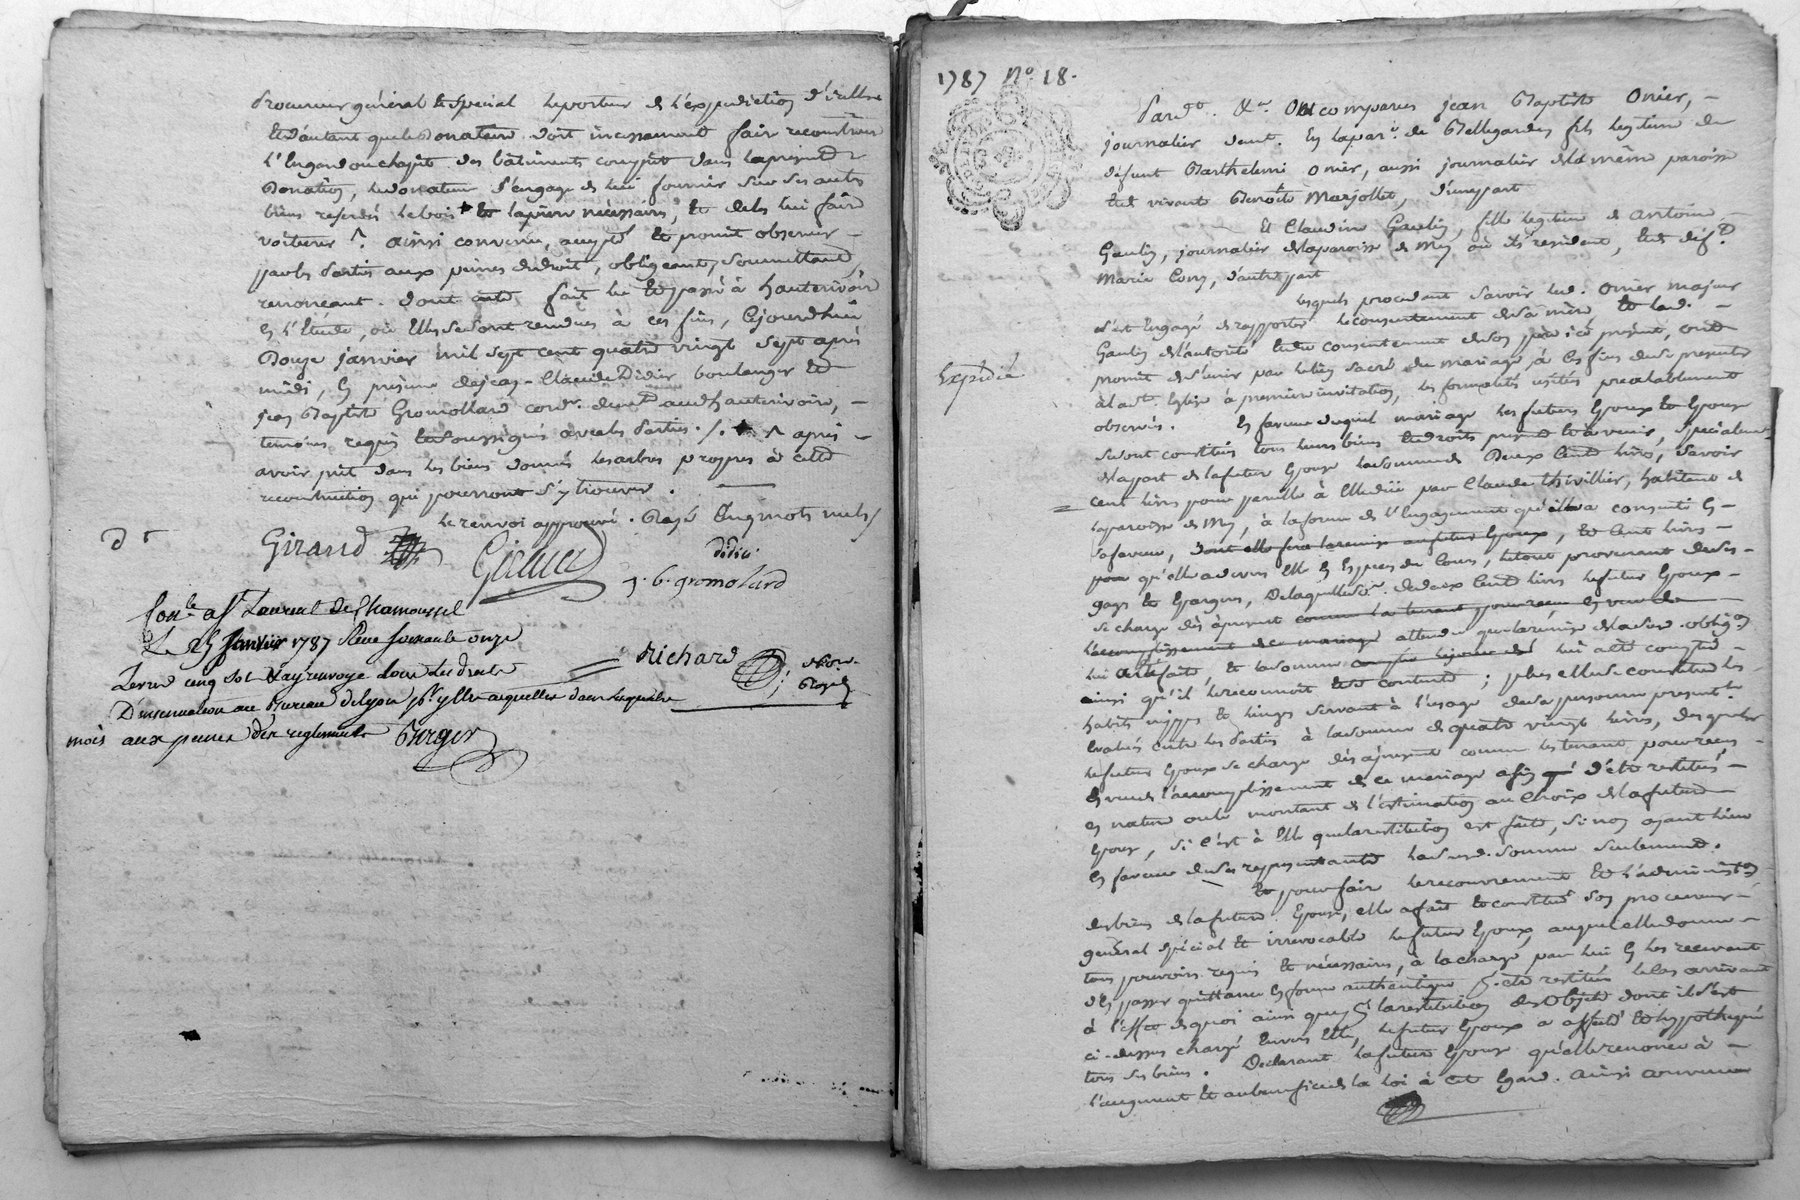 procureur général & spécial le porteur de l'expédition d'icelle
Et d'autant que le Donataire doit incessament faire reconstruire
l'Engard ou chapit des bâtiments compris dans la présente
Donation, le donateur s'engage de lui fournir sur ses autres
biens reservés le bois & la pierre nécessaires, & de les lui faire
voiturer ^. ainsi convenu, accepté & promit observer -
par les parties aux peines de droit, obligeant, soumettant,
renonçant. Dont acte fait lu & passé à hauterivoir
En l'Etude, où Elles se sont rendues à ces fins, Cejourdhui
Douze janvier mil sept cent quatre vingt sept après
midi, En présence de jean-Claude Didier boulanger Et
jean Baptiste Gromollard cord.r demt. aud. hauterivoire, -
temoins requis Et soussignés avec les parties ./. ^ après -
avoir prit dans les biens donnés les arbres propres à cette
reconstruction qui pourront s'y trouver.
le renvoi approuvé. Rayé Cinq mots nuls /
Giraud
didier
j. b. gromolard
Conle. a St Laurent de Chamousset
Le 25 Janvier 1787 Reçu soixante onze
Livres cinq sol & ay renvoyé pour Les droits
D'insinuation au Bureau de Lyon
mois aux peines des reglements Berger
Richard
1787 No. 18.
Pard.t &a. On comparus jean Baptiste Onier, -
journalier demt. En la par.e de Bellegarde, fils legitime de
défunt Barthelemi Onier, aussi journalier de la même paroisse
Et de vivante Benoite Marjollet, d'une part
Et Claudine Gaulin, fille legitime de antoine
Gaulin, journalier de la paroisse de Mey où ils resident, & de déf.te
Marie Cony, d'autre part
lesquels procedant savoir led. Onier majeur
s'est Engagé de rapporter le consentement de sa mere, & lad. -
Gaulin de l'autorité & du consentement de son père ici présent, ont
promit de s'unir par le lien sacré du mariage à les fins de se presenter
à la ste. Eglise à premiere invitation, les formalités usités préalablement
observés. En faveur duquel mariage les futurs Epoux & Epouse
se sont constitués tous leurs biens & droits présents & à venir, spécialement
Expédié
de la part de la future Epouse la somme de Deux Cent livres, savoir
cent livres pour pareille à Elle due par Claude thivillier, habitant de
la paroisse de Mey, à la forme de l'Engagement qu'il a consenti En
sa faveur, dont elle fera la remise au futur Epoux, & Cent livres -
qu'elle a devers Elle En Especes de Cours, le tout provenant de ses -
gages & Epargnes, De laquelle so.e de deux Cent livres le futur Epoux -
se charge dès àprésent comme la tenant pour reçue En vue de
l'accomplissement de ce mariage attendu que la remise de la sus. oblig.on
lui a été faite, & la somme lui a été comptée -
ainsi qu'il le reconnoit Et s'en contente ; plus elle se constitue les
habits nippes & linges servant à l'usage de sa personne presente.t
Evalués entre les parties à la somme de quatre vingt livres, desquels
le futur Epoux se charge dès àprésent comme les tenant pour reçus -
En vue de l'accomplissement de ce mariage afin d'être restitués -
En nature ou le montant de l'estimation au Choix de la future
Epouse, si C'est à Elle que la restitution est faite, si non ayant lieu
En faveur de ses representants la susd. somme seulement.
Et pour faire le recouvrement & l'administ.on
des biens de la future Epouse, elle a fait & constitué son procureur -
général spécial & irrévocable le futur Epoux, auquel elle donne -
tous pouvoirs requis & nécessaires, à la charge par lui En les recevant
d'En passer quittance En forme authentique En être restitués le Cas arrivant
à l'Effet de quoi ainsi que la restitution des objets dont il s'est
ci-dessus chargé Envers Elle, le futur Epoux a affecté & hypothequé
tous ses biens. Declarant la future Epouse qu'elle renonce à -
l'augment & au benefice de la Loi à Cet Egard. ainsi convenu